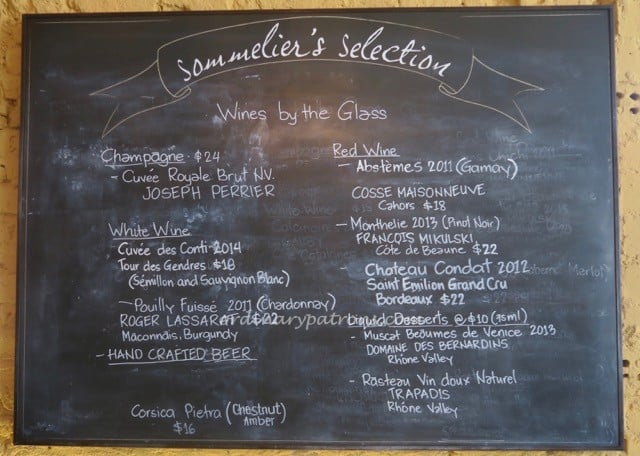 sommelier's selection
Wines by the Glass
Champagne $24
- Cuvée Royale Brut NV.
JOSEPH PERRIER
White Wine
Cuvée des Conti 2014
Tour des Gendres $18
(Sémillon and Sauvignon Blanc)
- Pouilly Fuissé 2011 (Chardonnay)
ROGER LASSARAT $22
Maconnais, Burgundy
- HAND CRAFTED BEER
Corsica Pietra (Chestnut Amber)
$16
Red Wine
- Abstèmes 2011 (Gamay)
COSSE MAISONNEUVE
Cahors $18
- Monthelie 2013 (Pinot Noir)
FRANÇOIS MIKULSKI
Côte de Beaune $22
- Chateau Condat 2012
Saint Emilion Grand Cru
Bordeaux $22
Liquid Desserts @ $10 (75ml)
- Muscat Beaumes de Venice 2013
DOMAINE DES BERNARDINS
Rhône Valley
- Rasteau Vin doux Naturel
TRAPADIS
Rhône Valley